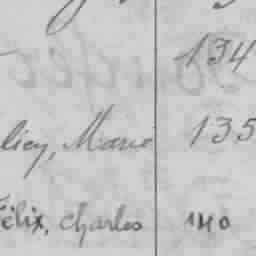 134
licy, Marie 135
Félix, Charles 140